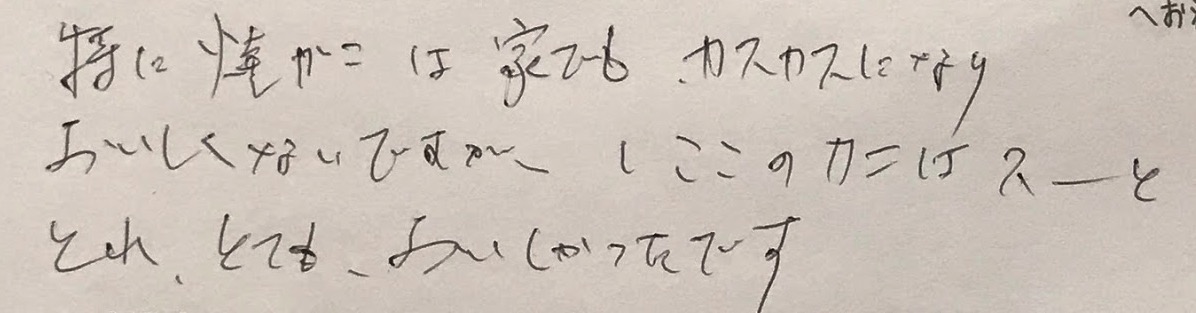 へお
特に焼ガニは家でも、カスカスになり
おいしくないですが、ここのカニはスーと
とれ、とても、おいしかったです